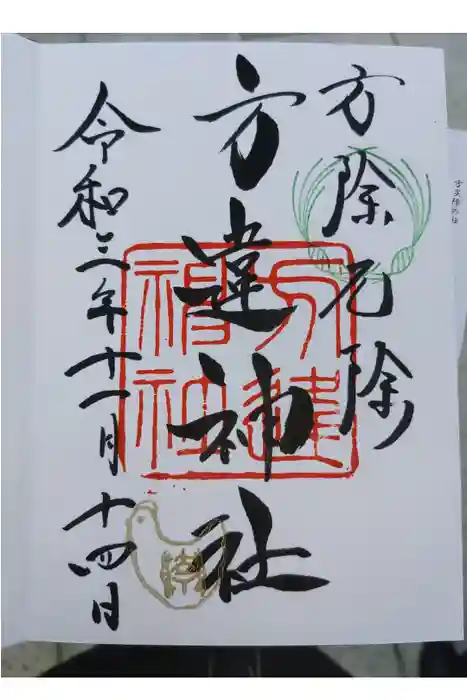 方除厄除
方違神社
令和三年十一月十四日
方違
神社